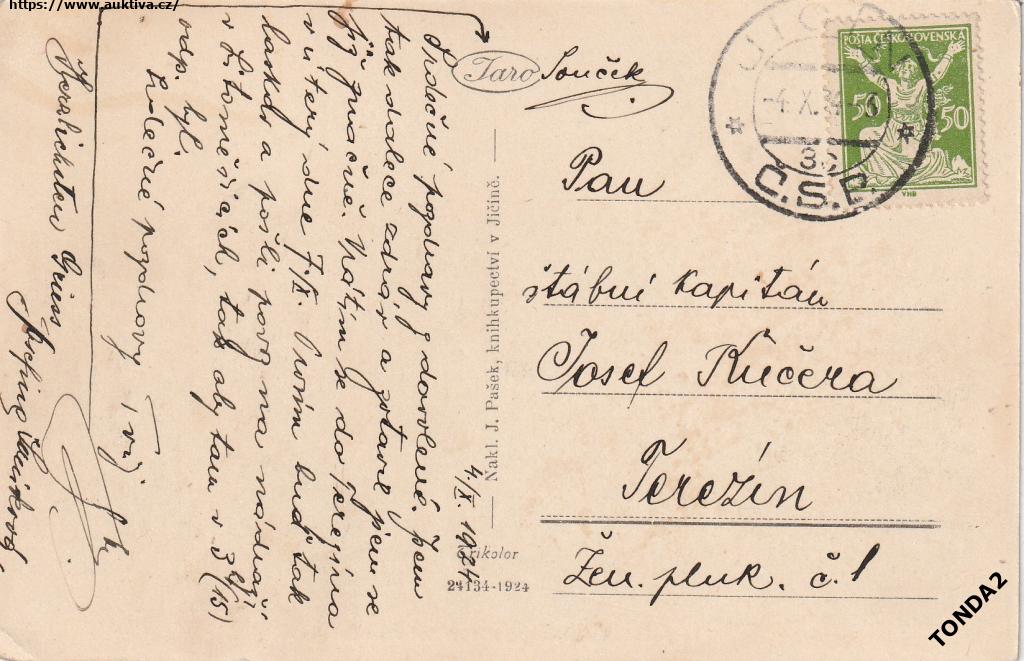 https://www.auktiva.cz/
4./X. 1924
Srdečné pozdravy z dovolené. Jsem
tak dalece zdráv a zotavil jsem se
již značně. Vrátím se do Terezína
v úterý dne 7./X. Prosím buď tak
laskav a pošli pro na nádraží
v Litoměřicích, tak aby tam v 3 (15)
odp. byl.
Srdečné pozdravy Tvůj
Herzlichsten Gruss
Jaro Souček
Nakl. J. Pašek, knihkupectví v Jičíně.
Trikolor
24134-1924
JIČÍN
-4.X.24-6
3
Č.S.P.
POŠTA ČESKOSLOVENSKÁ
50 50
VHB
Pan
štábní kapitán
Josef Kučera
Terezín
Žen. pluk. č. 1
TONDA2